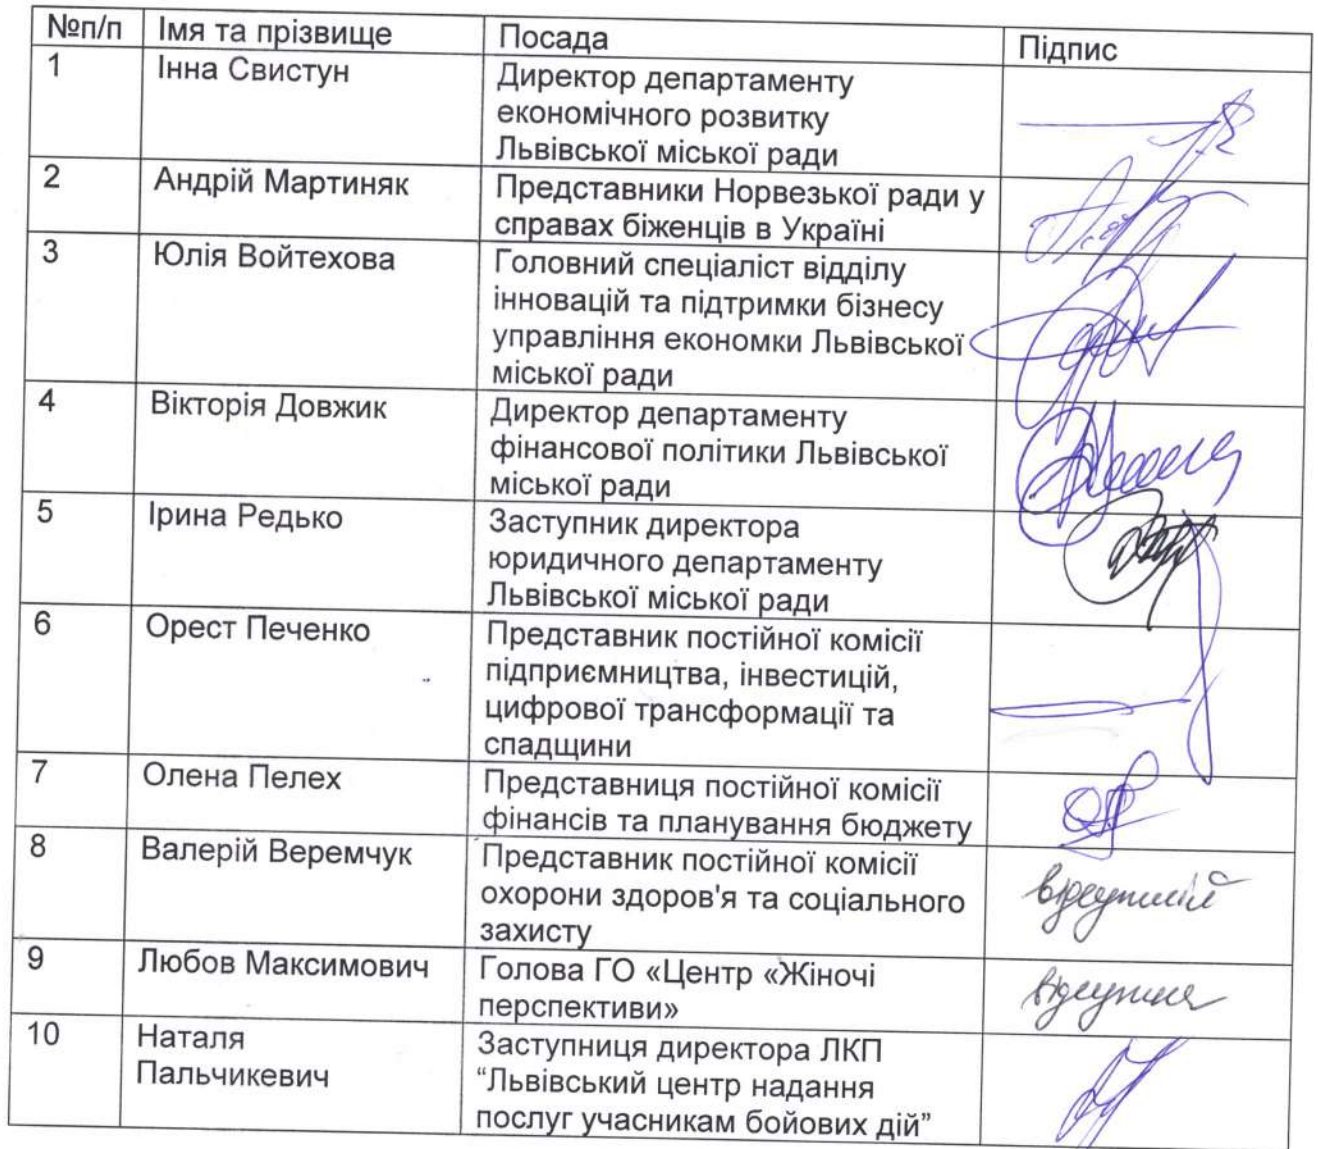 №п/п Імя та прізвище Посада Підпис
1 Інна Свистун Директор департаменту
економічного розвитку
Львівської міської ради
2 Андрій Мартиняк Представники Норвезької ради у
справах біженців в Україні
3 Юлія Войтехова Головний спеціаліст відділу
інновацій та підтримки бізнесу
управління економки Львівської
міської ради
4 Вікторія Довжик Директор департаменту
фінансової політики Львівської
міської ради
5 Ірина Редько Заступник директора
юридичного департаменту
Львівської міської ради
6 Орест Печенко Представник постійної комісії
підприємництва, інвестицій,
цифрової трансформації та
спадщини
7 Олена Пелех Представниця постійної комісії
фінансів та планування бюджету
8 Валерій Веремчук Представник постійної комісії відсутній
охорони здоров'я та соціального
захисту
9 Любов Максимович Голова ГО «Центр «Жіночі відсутня
перспективи»
10 Наталя Заступниця директора ЛКП
Пальчикевич “Львівський центр надання
послуг учасникам бойових дій”